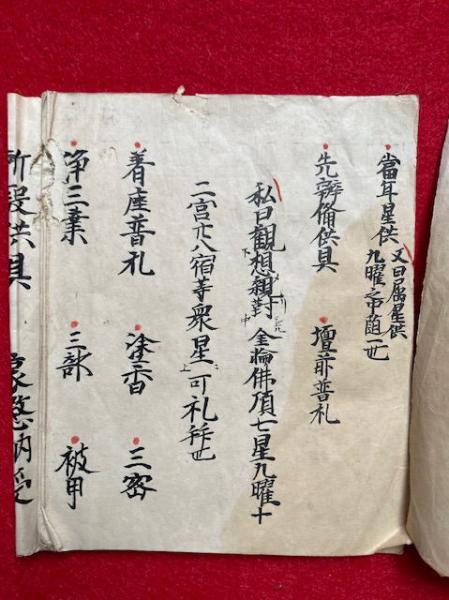 當年星供 又曰属星供
九曜之中随一也
先辨備供具 壇前普礼
私曰観想親對金輪佛頂七星九曜十
二宮廿八宿等衆星可礼拜也
着座普礼 塗香 三密
浄三業 三部 被甲
所設供具 哀愍納受